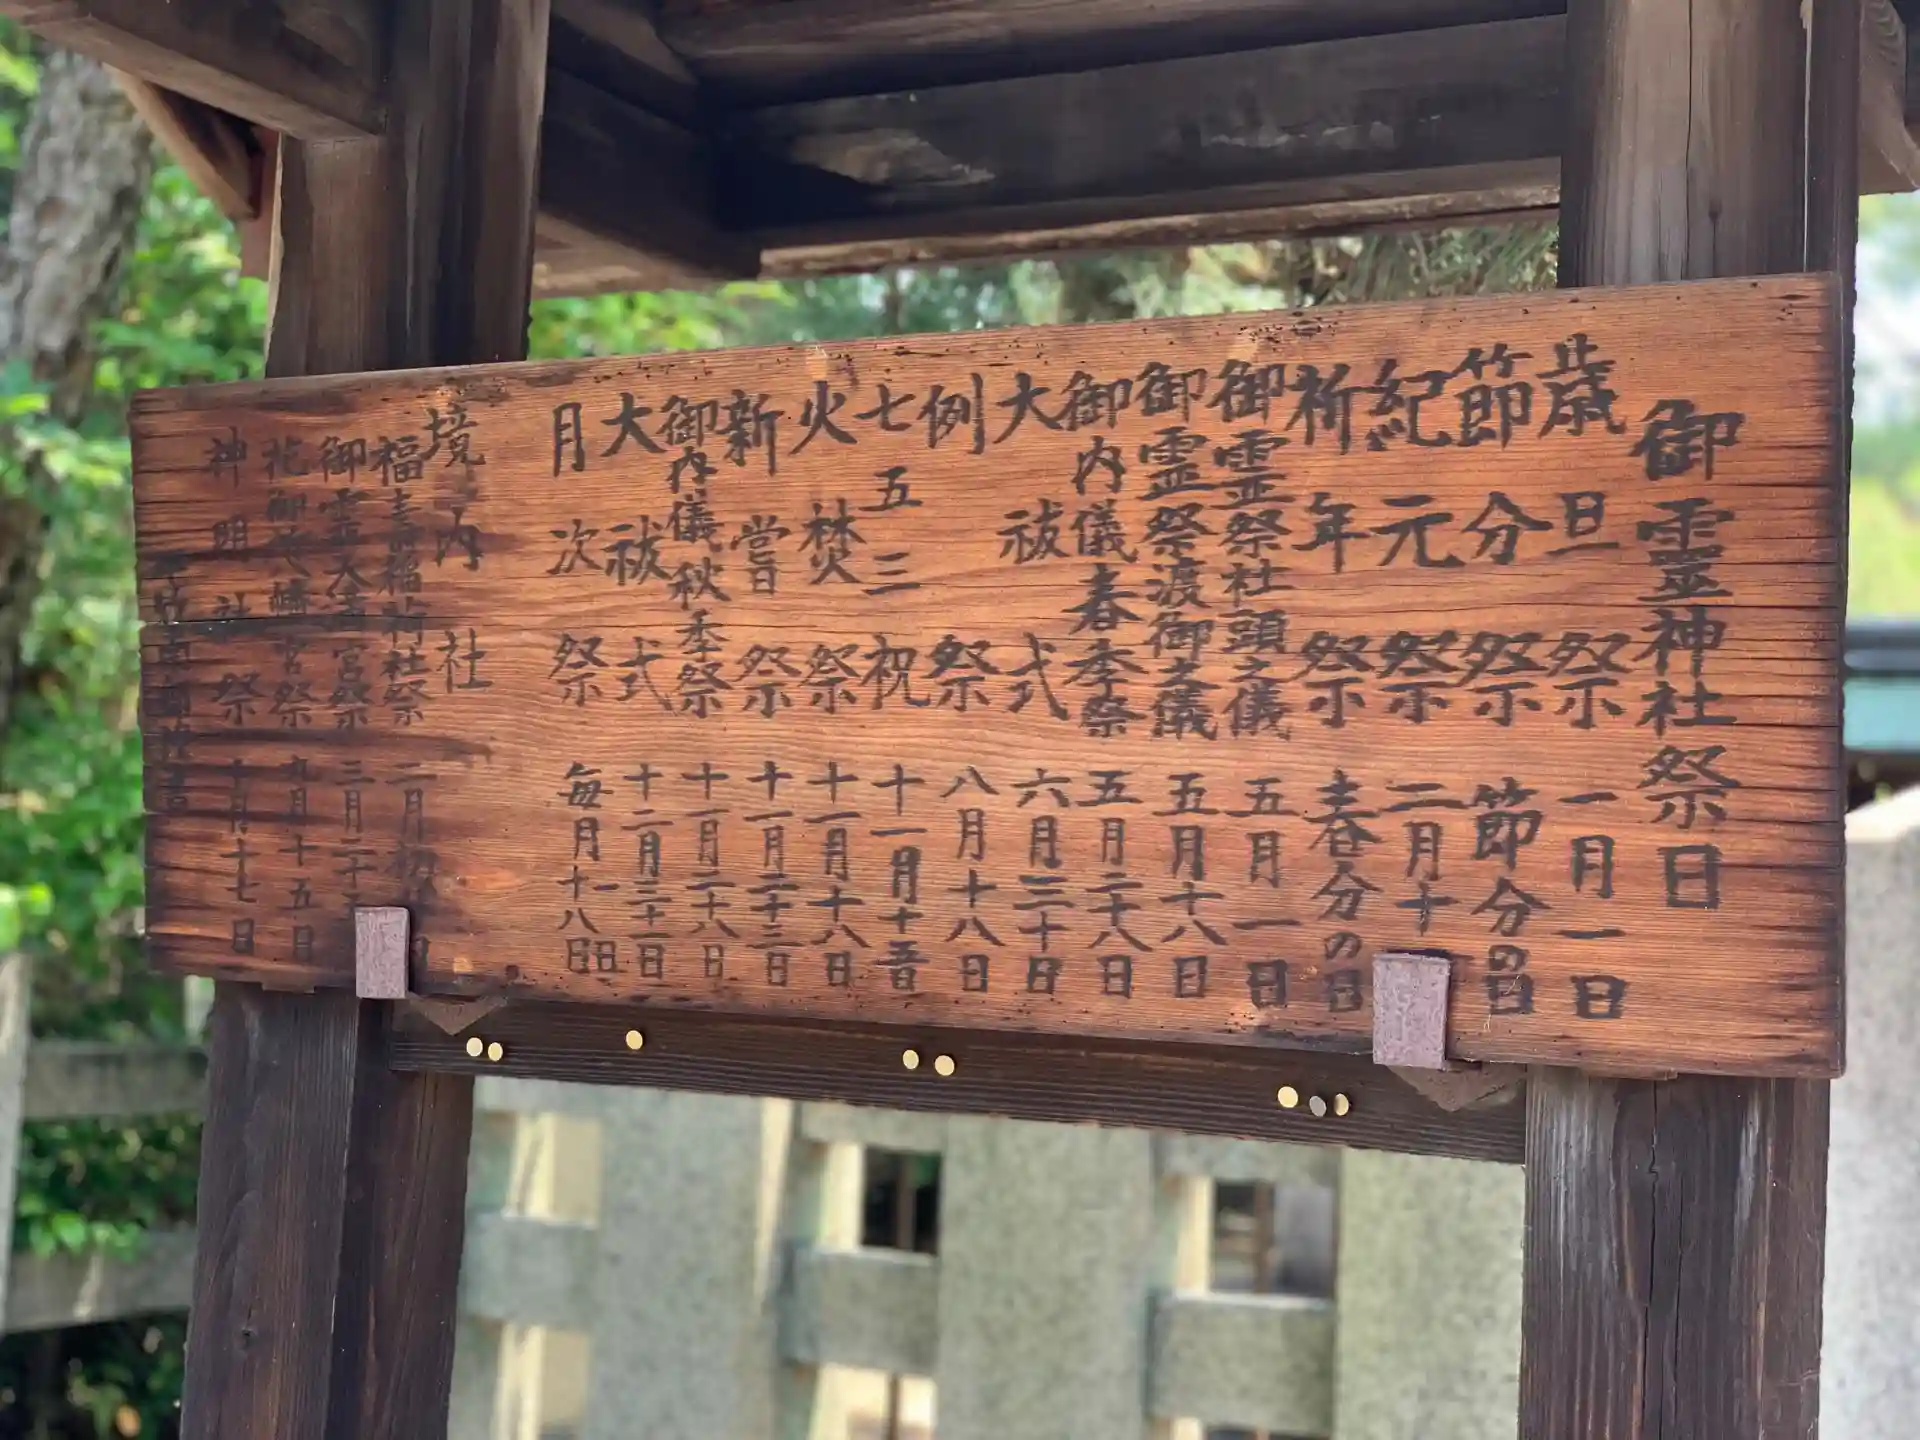 御靈神社祭日
歳旦祭 一月一日
節分祭 節分の日
紀元祭 二月十一日
祈年祭 春分の日
御霊祭社頭之儀 五月一日
御霊祭渡御之儀 五月十八日
御内儀春季祭 五月二十八日
大祓式 六月三十日
例祭 八月十八日
七五三祝 十一月十五日
火焚祭 十一月十八日
新嘗祭 十一月二十三日
御内儀秋季祭 十一月二十八日
大祓式 十二月三十一日
月次祭 毎月一日十八日
境内社
福寿稲荷社祭 二月初
御霊大金宮祭 三月二十
花御所八幡宮祭 九月十五日
神明社祭 十月十七日